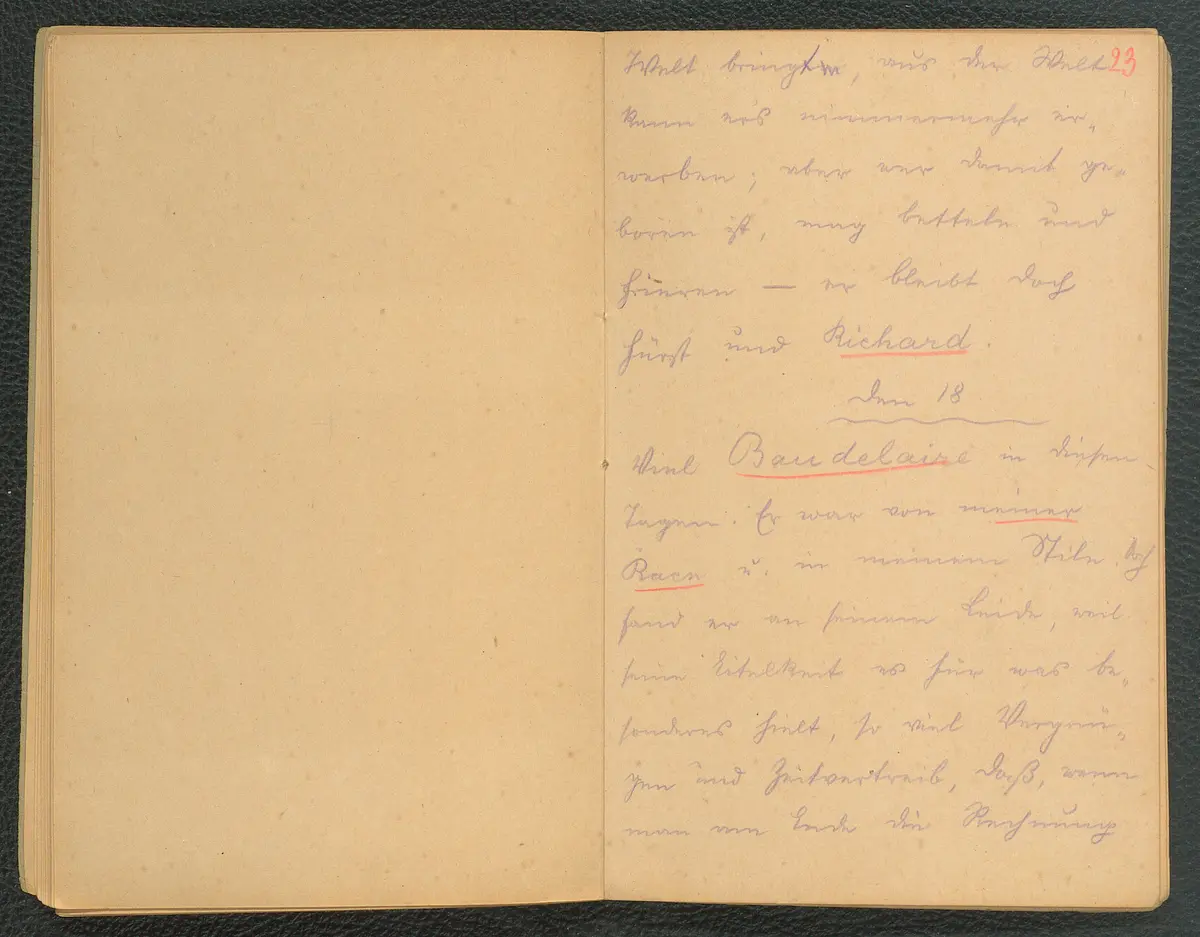 Welt bringt, aus der Welt 23
kann ers nimmermehr er„
werben; aber wer damit ge„
boren ist, mag betteln und
frieren — er bleibt doch
Fürst und Richard.
den 18
Viel Baudelaire in diesen
Tagen. Er war von meiner
Race u. in meinem Stile. Doch
fand er an seinem Leide, weil
seine Eitelkeit es für was be„
sonderes hielt, so viel Vergnü„
gen und Zeitvertreib, daß, wenn
man am Ende die Rechnung